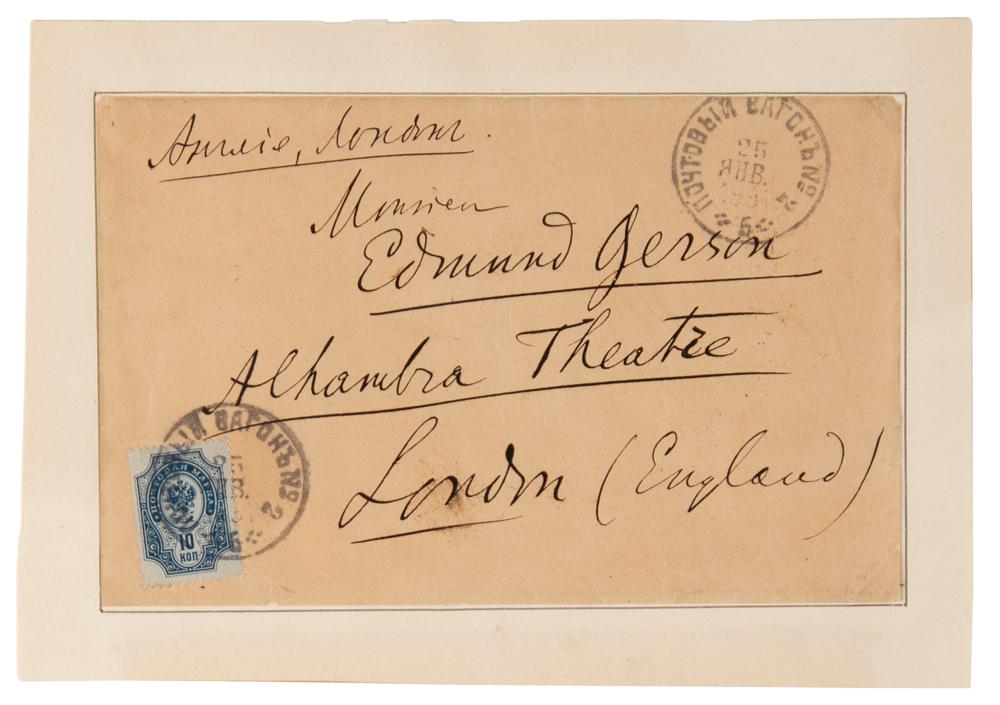 Англія, Лондонъ.
ПОЧТОВЫЙ ВАГОНЪ № 2
25
ЯНВ.
5
Monsieur
Edmund Gerson
Alhambra Theatre
London (England)
ВАГОНЪ № 2
25
5
ПОЧТОВАЯ МАРКА
10
КОП